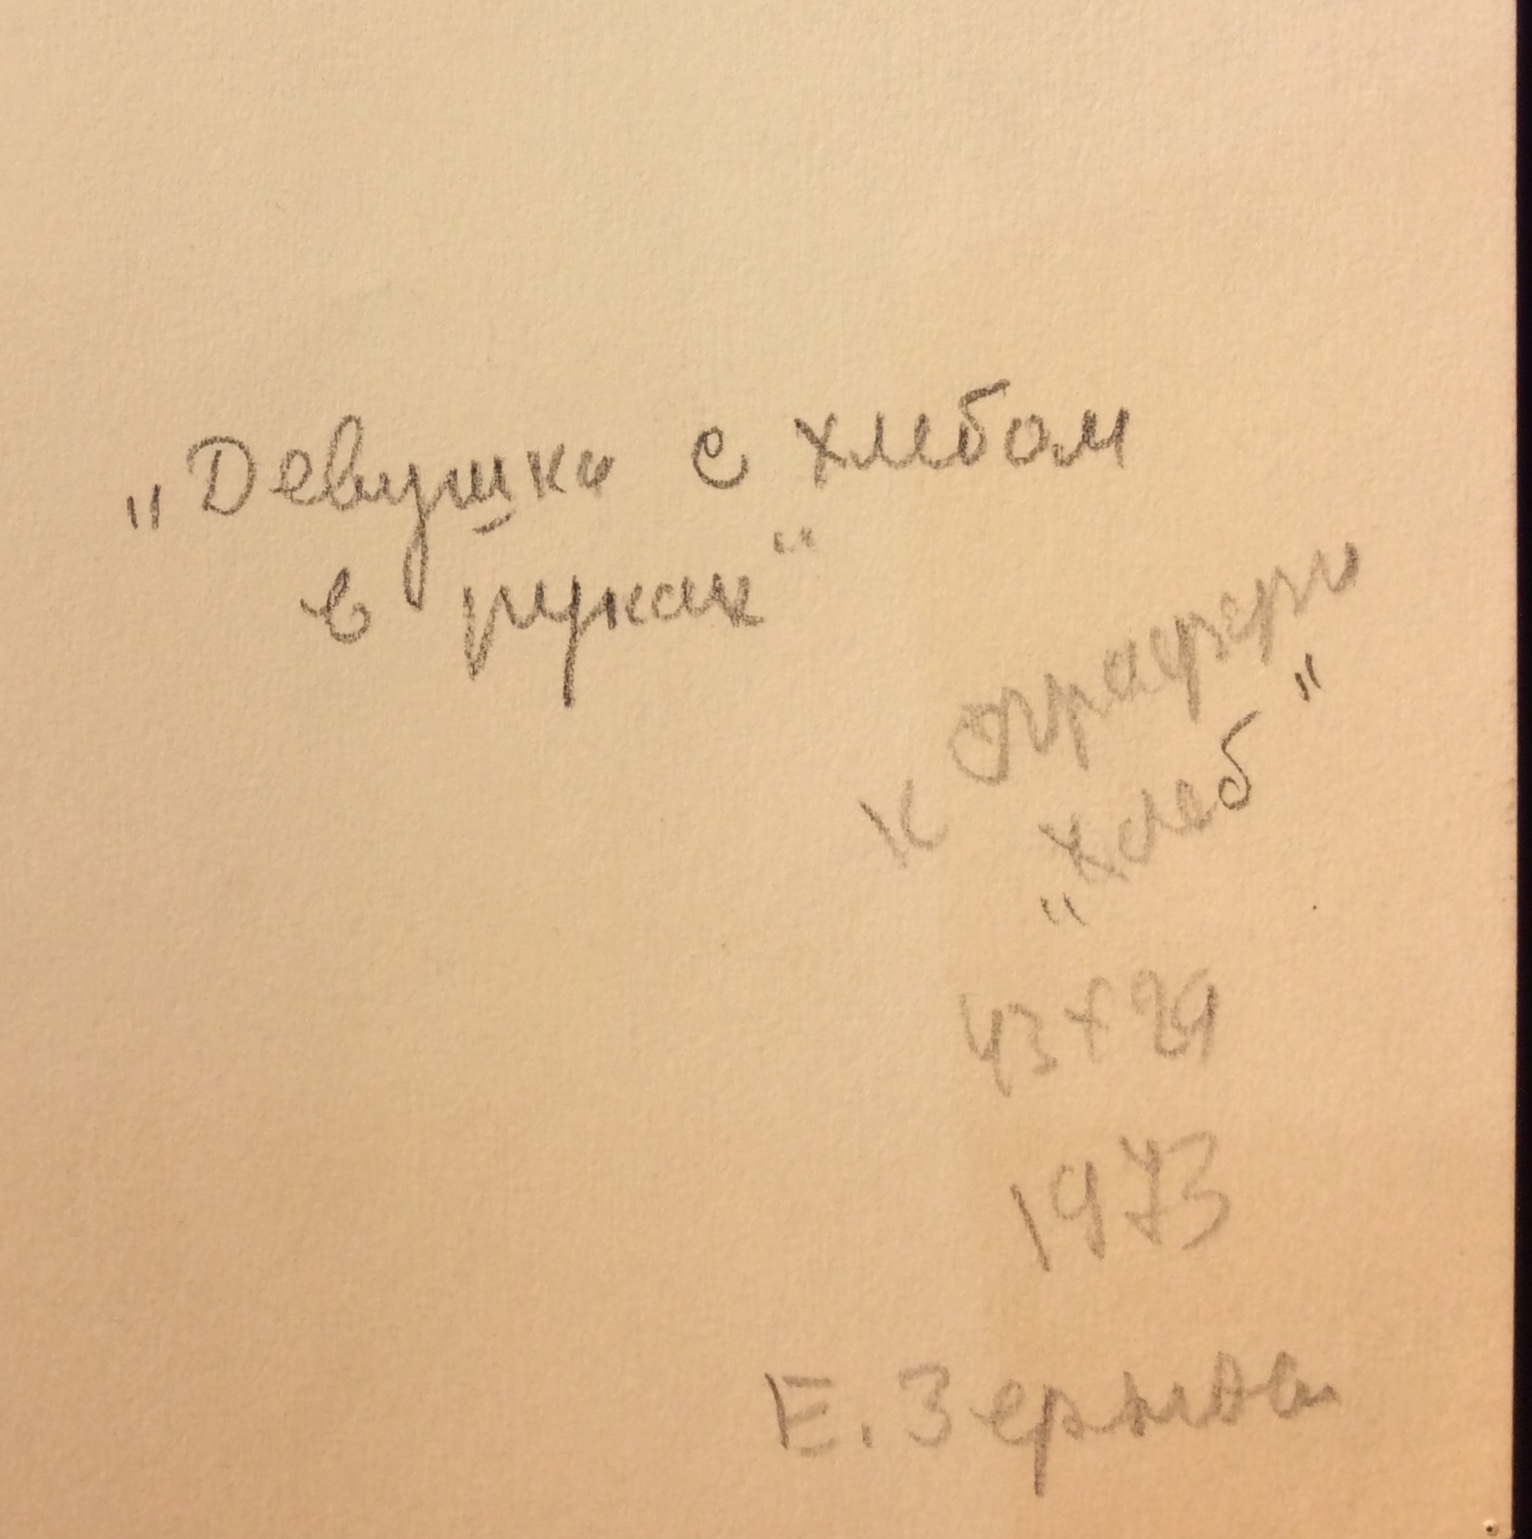 „Девушка с хлебом
в руках“
к
„Хлеб“
43х29
1973
Е. Зернова